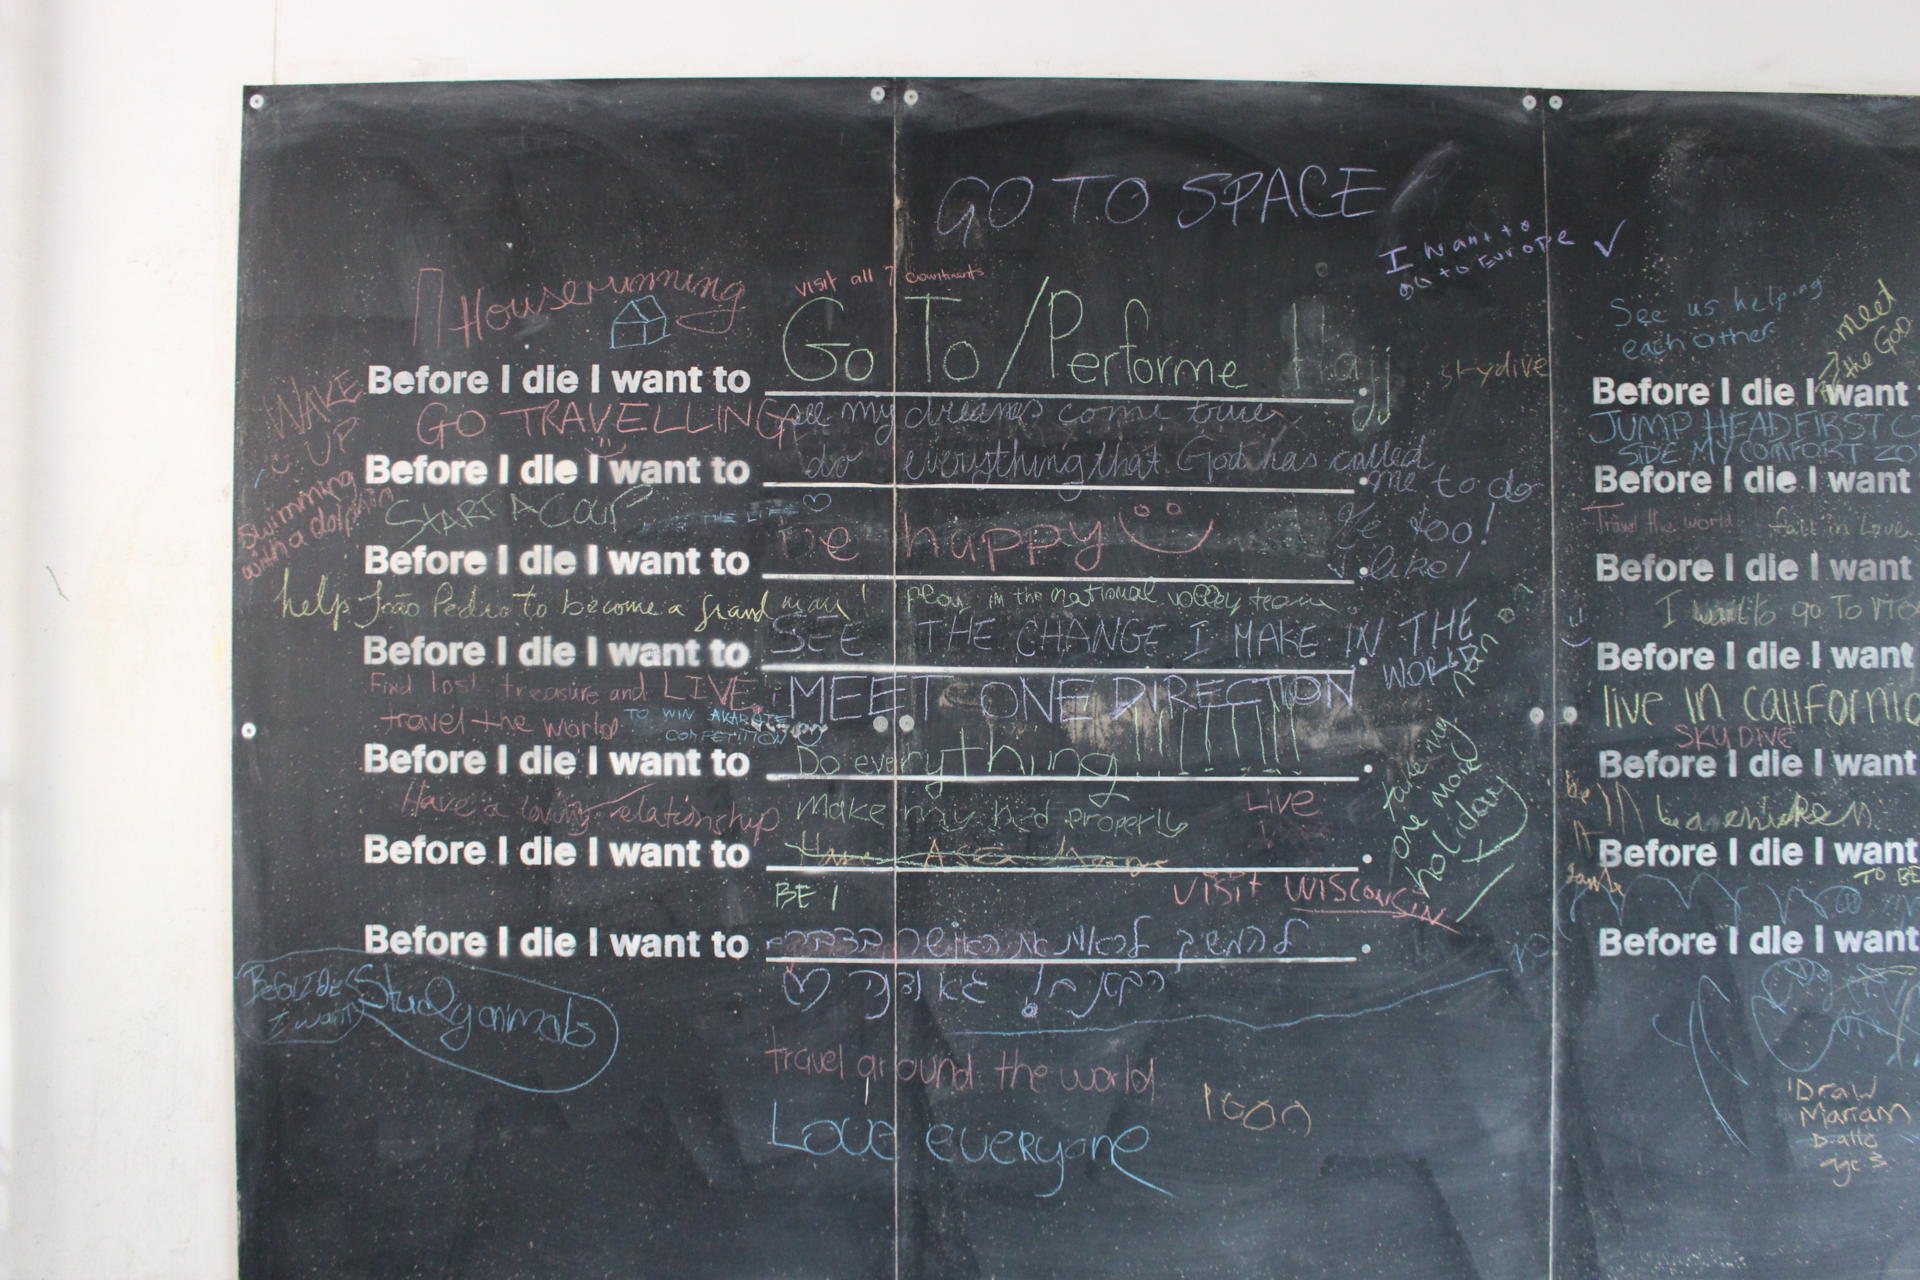 GO TO SPACE
I want to
go to Europe ✓
visit all 7
Houserunning
Go To/Performe Hajj
See us helping
each other
meet
the God
skydive
Before I die I want to
Before I die I want
WAKE
UP
GO TRAVELLING
see my dreams come true
JUMP HEADFIRST
SIDE MY COMFORT ZO
Before I die I want to
do everything that God has called
me to do
Before I die I want
swimming
with a dolphin
START A
THE LIFE
be happy
too!
like!
Travel the world
fall in Love
Before I die I want to
Before I die I want
help João Pedro to become a grand man!
play in the national volley team
I want to go To
SEE THE CHANGE I MAKE IN THE
WORLD
Before I die I want to
Before I die I want
Find lost treasure and LIVE
MEET ONE DIRECTION
live in california
travel the world
TO WIN A KARATE
COMPETITION
SKYDIVE
Do everything!!!!!!!!
Before I die I want to
Before I die I want
taking
one more
holiday
Have a loving relationship
make my bed properly
Live
be a chicken
Before I die I want to
Before I die I want
TO BE
BE 1
Visit WISCONSIN
Before I die I want to
להמשיך לראות את האושר בדברים
Before I die I want
הקטנים!
Before I die
I want
Study animals
travel around the world
Love everyone
Draw
Mariam
Diallo
age 3